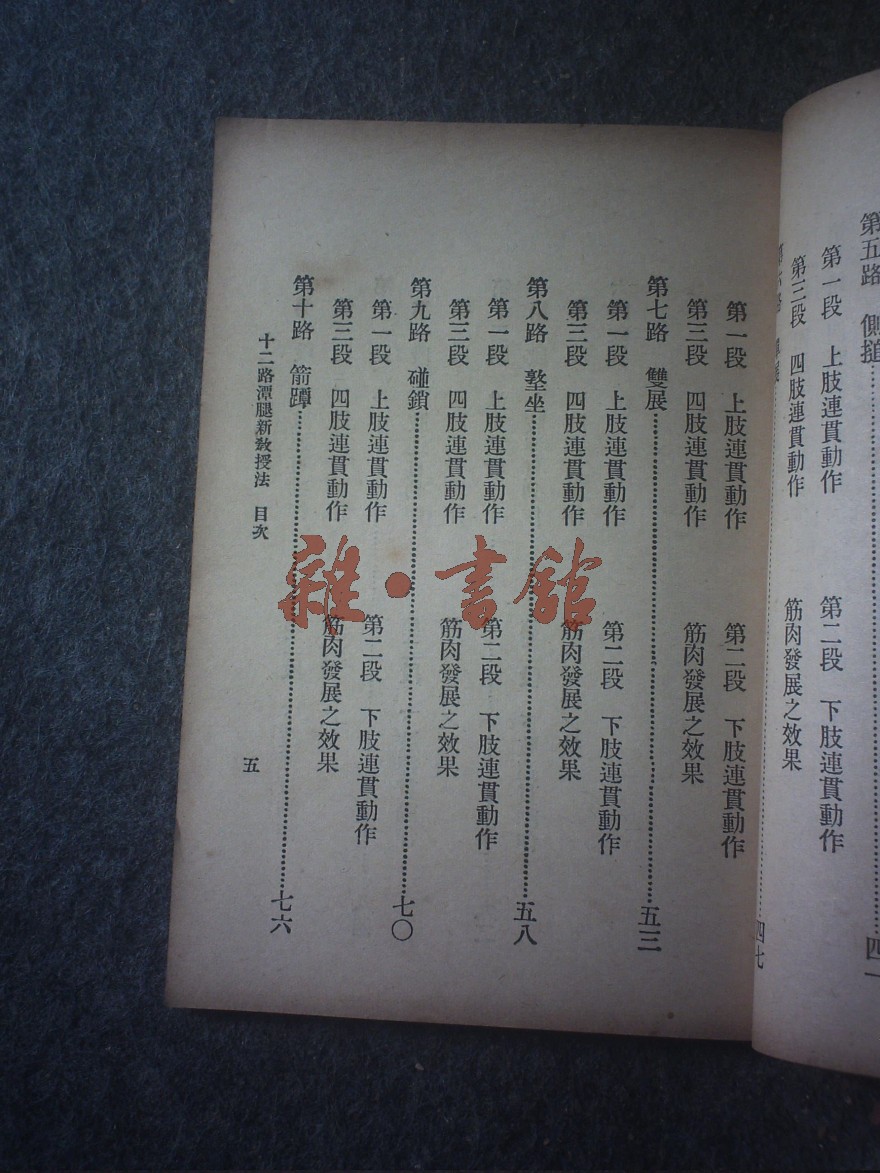 第五路　側搥……四一
第一段　上肢連貫動作　第二段　下肢連貫動作
第三段　四肢連貫動作　筋肉發展之效果
第六路　展……四七
第一段　上肢連貫動作　第二段　下肢連貫動作
第三段　四肢連貫動作　筋肉發展之效果
第七路　雙展……五三
第一段　上肢連貫動作　第二段　下肢連貫動作
第三段　四肢連貫動作　筋肉發展之效果
第八路　墊坐……五八
第一段　上肢連貫動作　第二段　下肢連貫動作
第三段　四肢連貫動作　筋肉發展之效果
第九路　碰鎖……七〇
第一段　上肢連貫動作　第二段　下肢連貫動作
第三段　四肢連貫動作　筋肉發展之效果
第十路　箭蹕……七六
十二路潭腿新教授法　目次　五
雜·書館